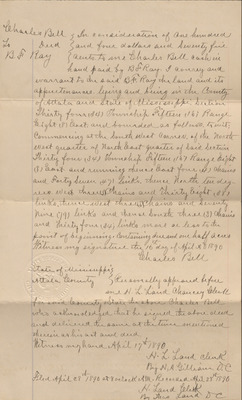 Charles Bell } In consideration of One hundred
To Deed } and four dollars and Seventy five
B F Ray } cents to me Charles Bell cash in
hand paid by B F Ray I convey and
warrant to the said B F Ray the land and its
appurtenances lying and being in the County
of Attala and State of Mississippi Section
Thirty four (34) Township Fifteen (15) Range
Eight (8) East and bounded as follows to wit;
Commencing at the South West Corner of the North
West quarter of North East quarter of said Section
Thirty four (34) Township Fifteen (15) Range Eight
(8) East and running thence East four (4) Chains
and Forty seven (47) links thence North
West three (3) Chains and thirty eight (38)
links thence West three (3) Chains and seventy
nine (79) links and thence South three (3) Chains
and thirty four (34) links more or less to the
point of beginning Containing one and one half acres
Witness my signature the 15th day of April 1890
Charles Bell
State of Mississippi
Attala County } Personally appeared before
me H. L. Land Chancery Clerk
for said County the above Charles Bell
who acknowledged that he signed the above deed
and delivered the same at the time mentioned
therein as his act and deed.
Witness my hand April 15th 1890.
H. L. Land Clerk
By D.C.
Filed April 1890 at 8 o'clock A.M. Recorded April 1890.
H. Land Clerk
By Land D.C.